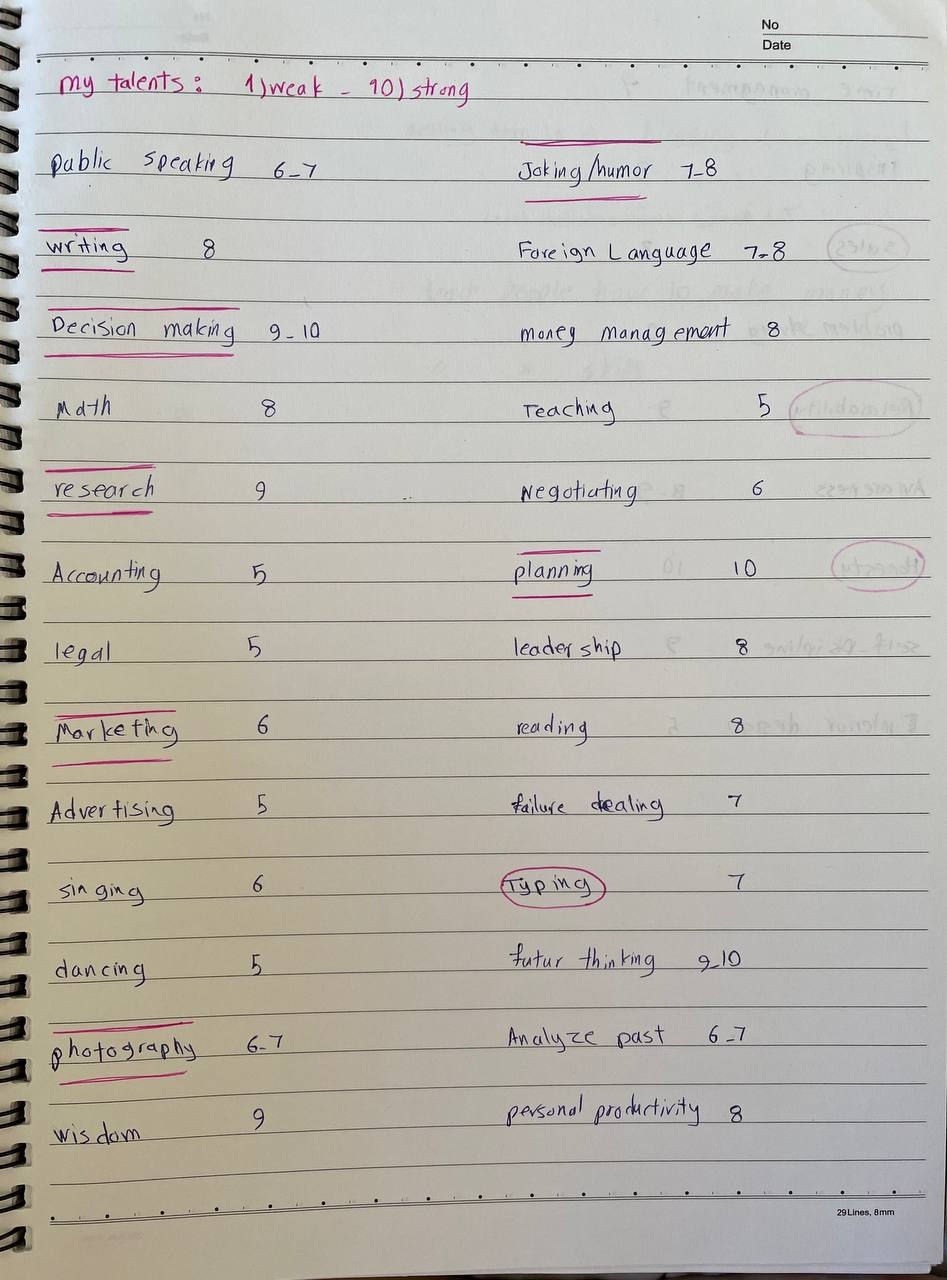 No
Date
My talents: 1) weak - 10) strong
public speaking 6-7
Joking/humor 7-8
writing 8
Foreign Language 7-8
Decision making 9-10
money management 8
Math 8
Teaching 5
research 9
Negotiating 6
Accounting 5
planning 10
legal 5
leadership 8
Marketing 6
reading 8
Advertising 5
failure dealing 7
singing 6
Typing 7
dancing 5
futur thinking 9-10
photography 6-7
Analyze past 6-7
wisdom 9
personal productivity 8
29Lines, 8mm